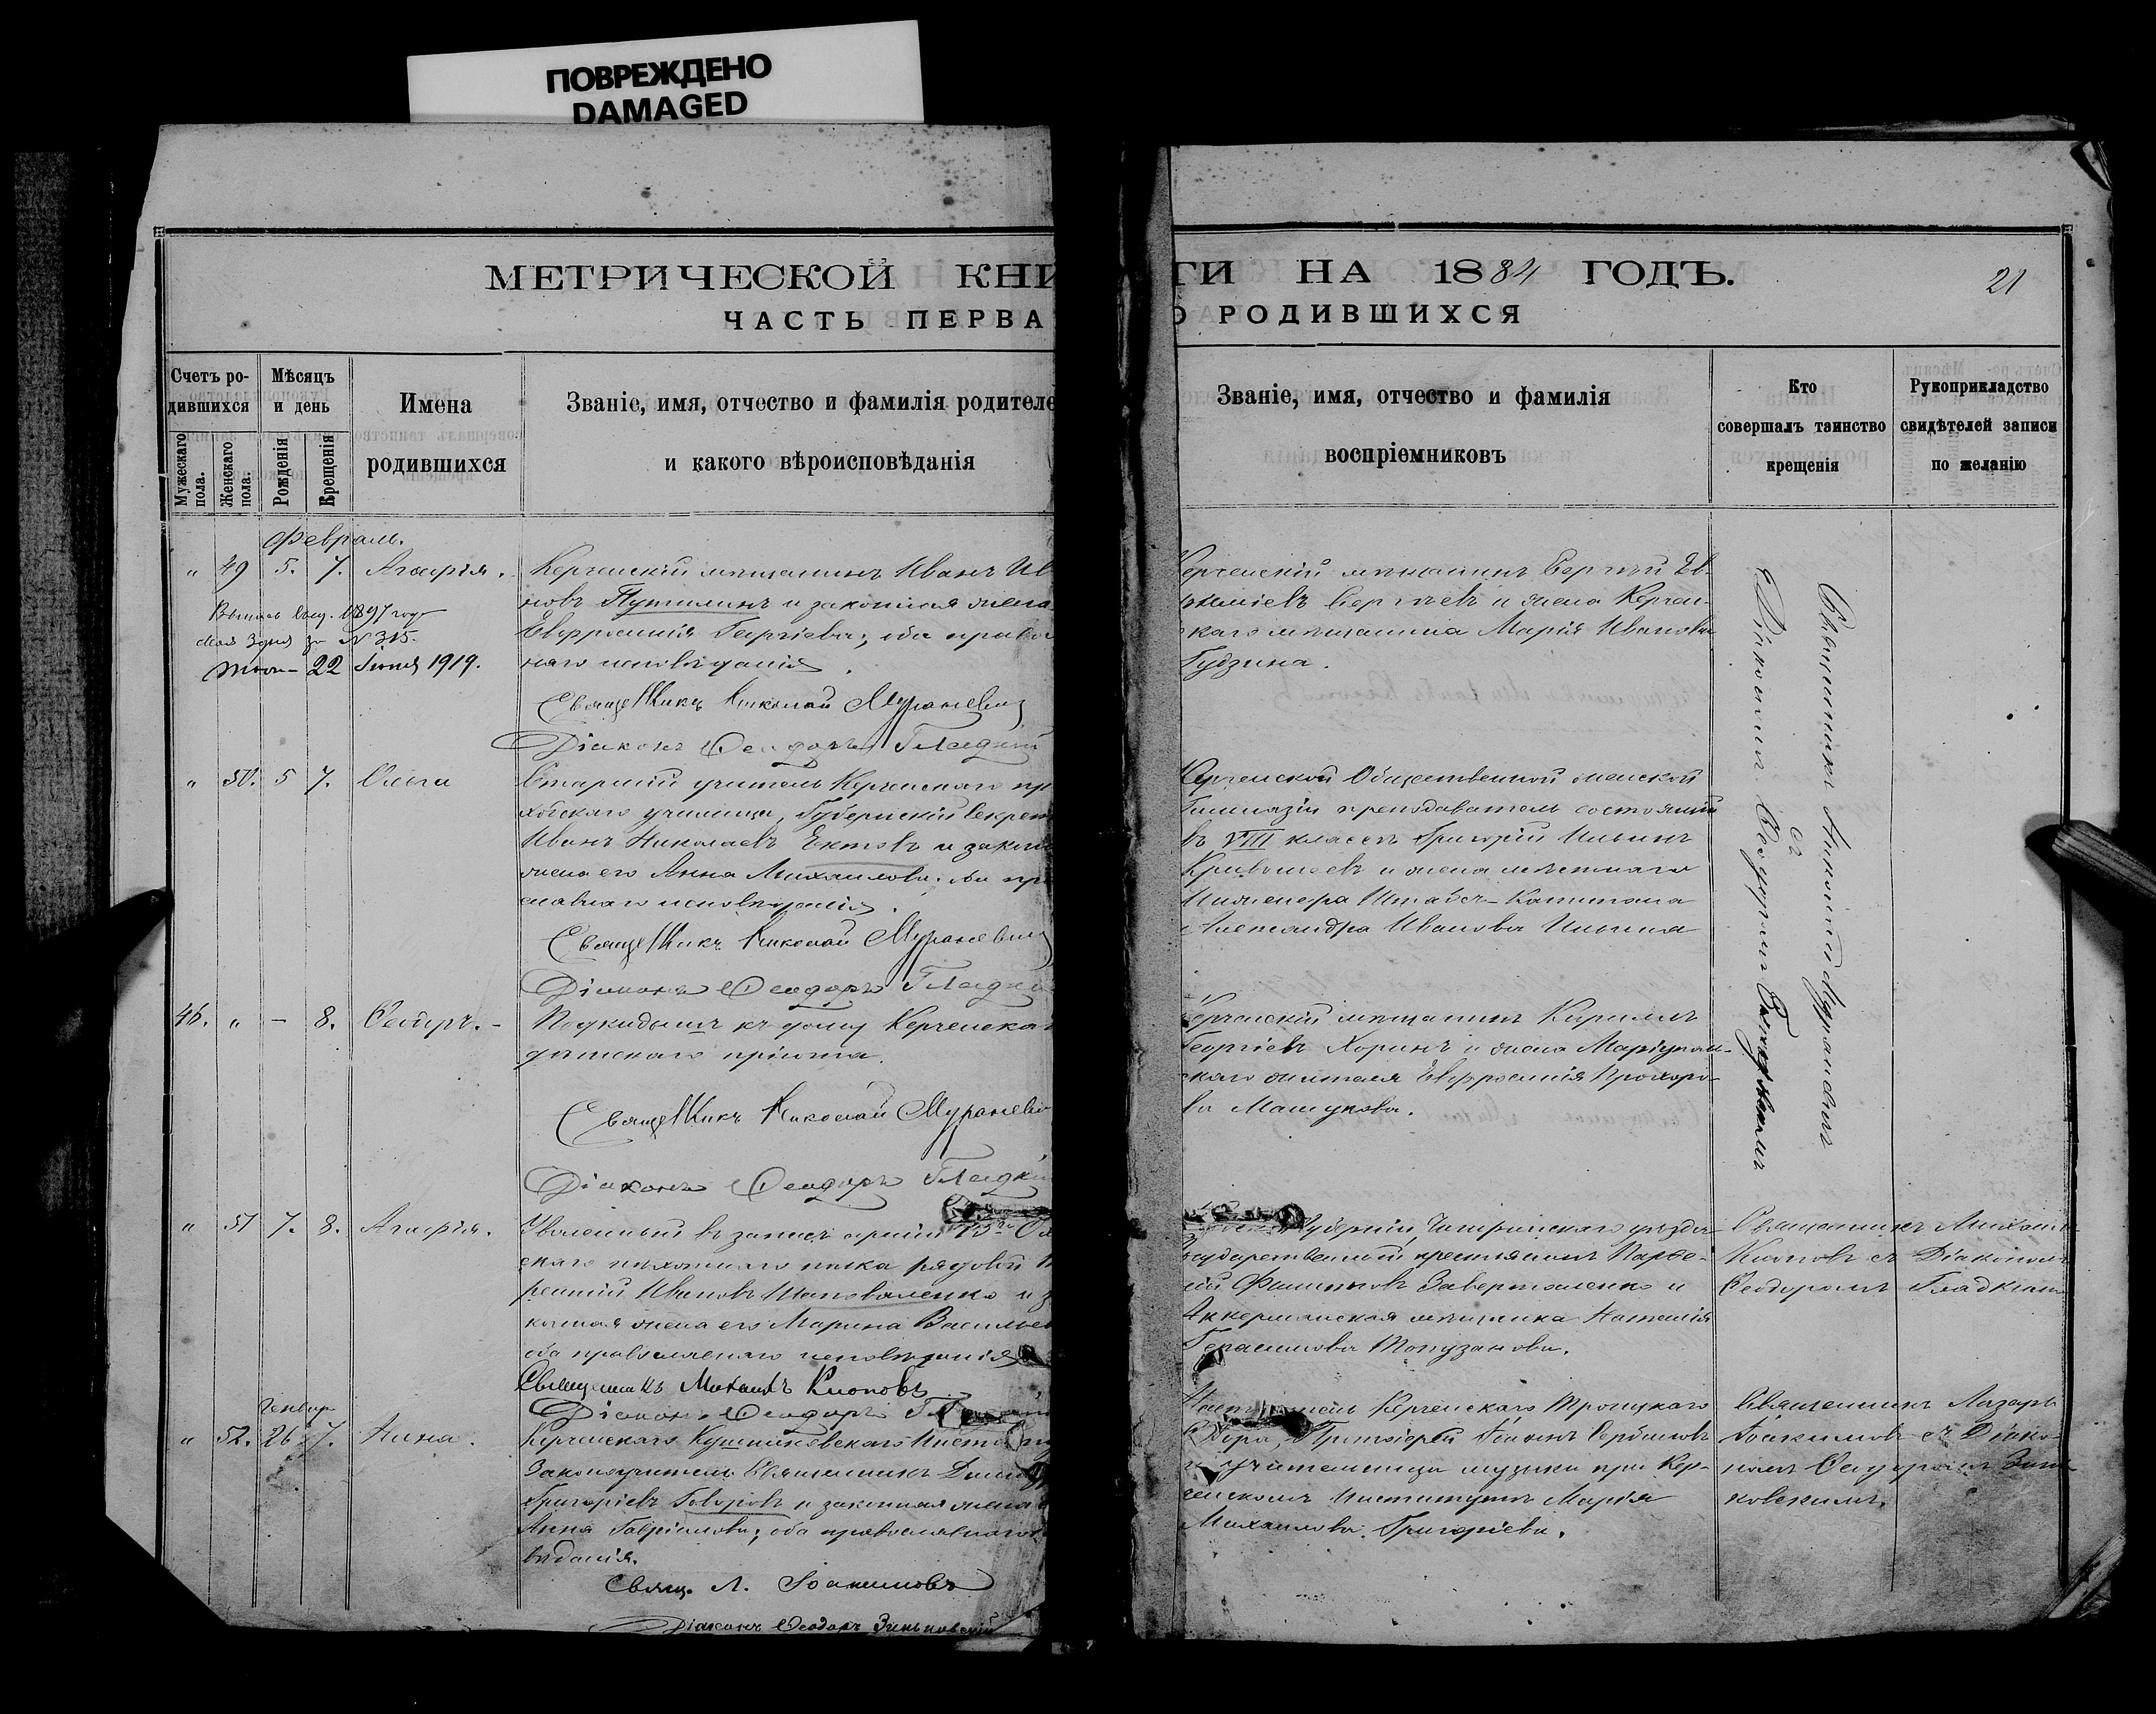 ПОВРЕЖДЕНО
DAMAGED
МЕТРИЧЕСКОЙ КНИ
ГИ НА 1884 ГОДЪ.
21
ЧАСТЬ ПЕРВА
О РОДИВШИХСЯ
Счетъ ро-
дившихся
Мужескаго пола.
Женскаго пола.
Мѣсяцъ
и день
Рожденія
Крещенія
Имена
родившихся
Званіе, имя, отчество и фамилія родителе
и какого вѣроисповѣданія
Званіе, имя, отчество и фамилія
воспріемниковъ
Кто
совершалъ таинство
крещенія
Рукоприкладство
свидѣтелей записи
по желанію
Февраль.
" 49 5. 7. Агафія.
1897 года
за № 315.
22 Іюня 1919.
Керченскій мѣщанинъ Иванъ Ив
новъ Путилинъ и законная жена
Евфросинія Георгіева; оба право
наго исповѣданія.
Священникъ Николай Мураневич
Діаконъ Феодоръ Гладкій
Керченскій мѣщанинъ Сергѣй Ев-
Сергѣевъ и жена Керчен-
скаго мѣщанина Марія Иванова
Гудзина.
Священникъ Николай Мураневичъ
съ
Діакономъ Феодоромъ Гладкимъ
" 50. 5 7. Ольга
Старшій учитель Керченскаго пр
ходскаго училища, Губернскій Секрет
Иванъ Николаевъ Ектовъ и закон
жена его Анна Михаилова. оба пр
славнаго исповѣданія.
Священникъ Николай Мураневич
Діаконъ Феодоръ Гладкі
Керченской Общественной женской
Гимназіи преподаватель состоящій
въ VIII классѣ Григорій Ильинъ
Кривошеевъ и жена мѣстнаго
Инженера Штабсъ-Капитана
Александра Иванова Ильина
46. " – 8. Феодоръ. –
Подкидышъ къ дому Керченска
дѣтскаго пріюта.
Священникъ Николай Мураневи
Діаконъ Феодоръ Гладкі
Керченскій мѣщанинъ Кириллъ
Георгіевъ Хоринъ и жена Маріупол-
скаго жителя Евфросинія Прохоро-
ва Машукова.
" 51 7. 8. Агафія.
Уволенный въ запасъ арміи
скаго пѣхотнаго полка рядовой
Ивановъ Шаповаленко и з
конная жена его Марина Василье
оба православнаго исповѣданія
Священникъ Михаилъ Клоповъ
Діаконъ Феодоръ
Губерніи, Чигринскаго уѣзда
Государственный крестьянинъ Парфе-
ній Филиповъ Заверталенко и
Аккерманская мѣщанка Наталія
Герасимова Топузанова.
Священникъ Михаилъ
Клоповъ съ Діакономъ
Феодоромъ Гладкимъ
Генваря
" 52. 26 7. Нина.
Керченскаго Кушниковскаго Инсти
Законоучитель Священникъ Дими
Григоріевъ Говоровъ и законная жена
Анна Гавріилова; оба православнаго
вѣданія.
Свящ. Л. Іоакимовъ
Діаконъ Феодоръ Зиньковскій
Керченскаго Троицкаго
Собора, Протоіерей Іоаннъ Сербиновъ
и учительница музыки при Кер-
ченскомъ Институтѣ Марія
Михаилова Григорьева.
Священникъ Лазарь
Іоакимовъ съ Діако-
номъ Феодоромъ Зинь
ковскимъ.